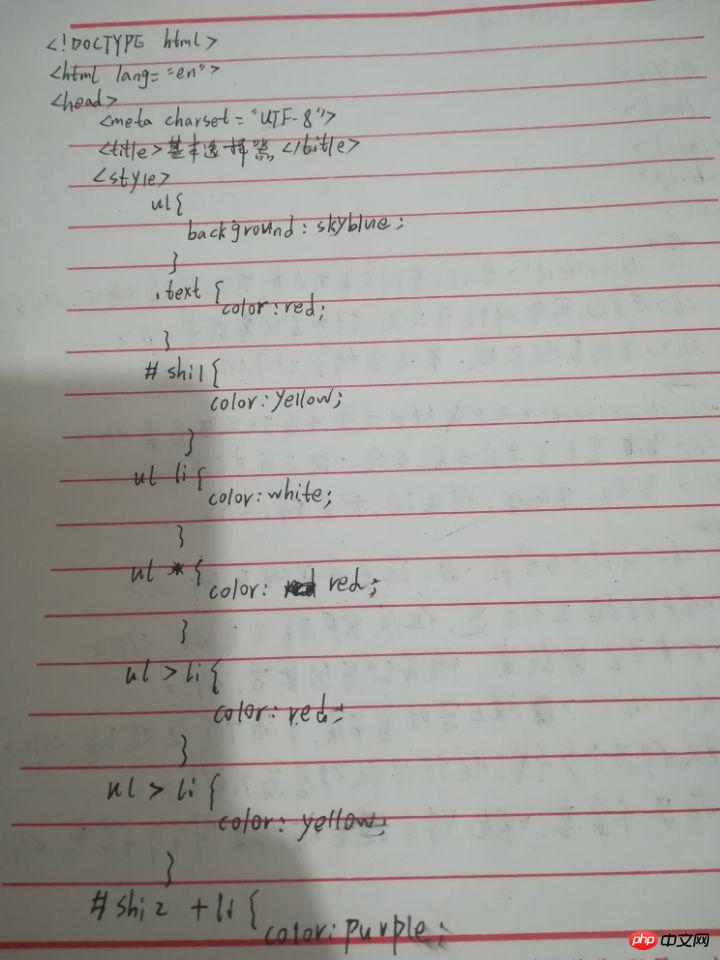 <!DOCTYPE html>
<html lang="en">
<head>
<meta charset="UTF-8">
<title>基本选择器</title>
<style>
ul{
background: skyblue;
}
.text{
color:red;
}
#shi1{
color:yellow;
}
ul li{
color:white;
}
ul *{
color: red;
}
ul>li{
color:red;
}
ul>li{
color: yellow;
}
#shi2 +li{
color:purple;
php中文网